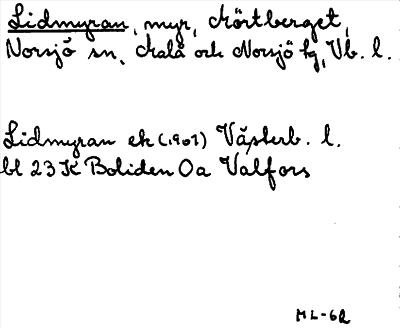 Lidmyran, myr, Mörtberget,
Norsjö sn, Malå och Norsjö tg, Vb. l.
Lidmyran ek (1907) Västerb. l.
bl 23 K Boliden 0a Valfors
ML-62